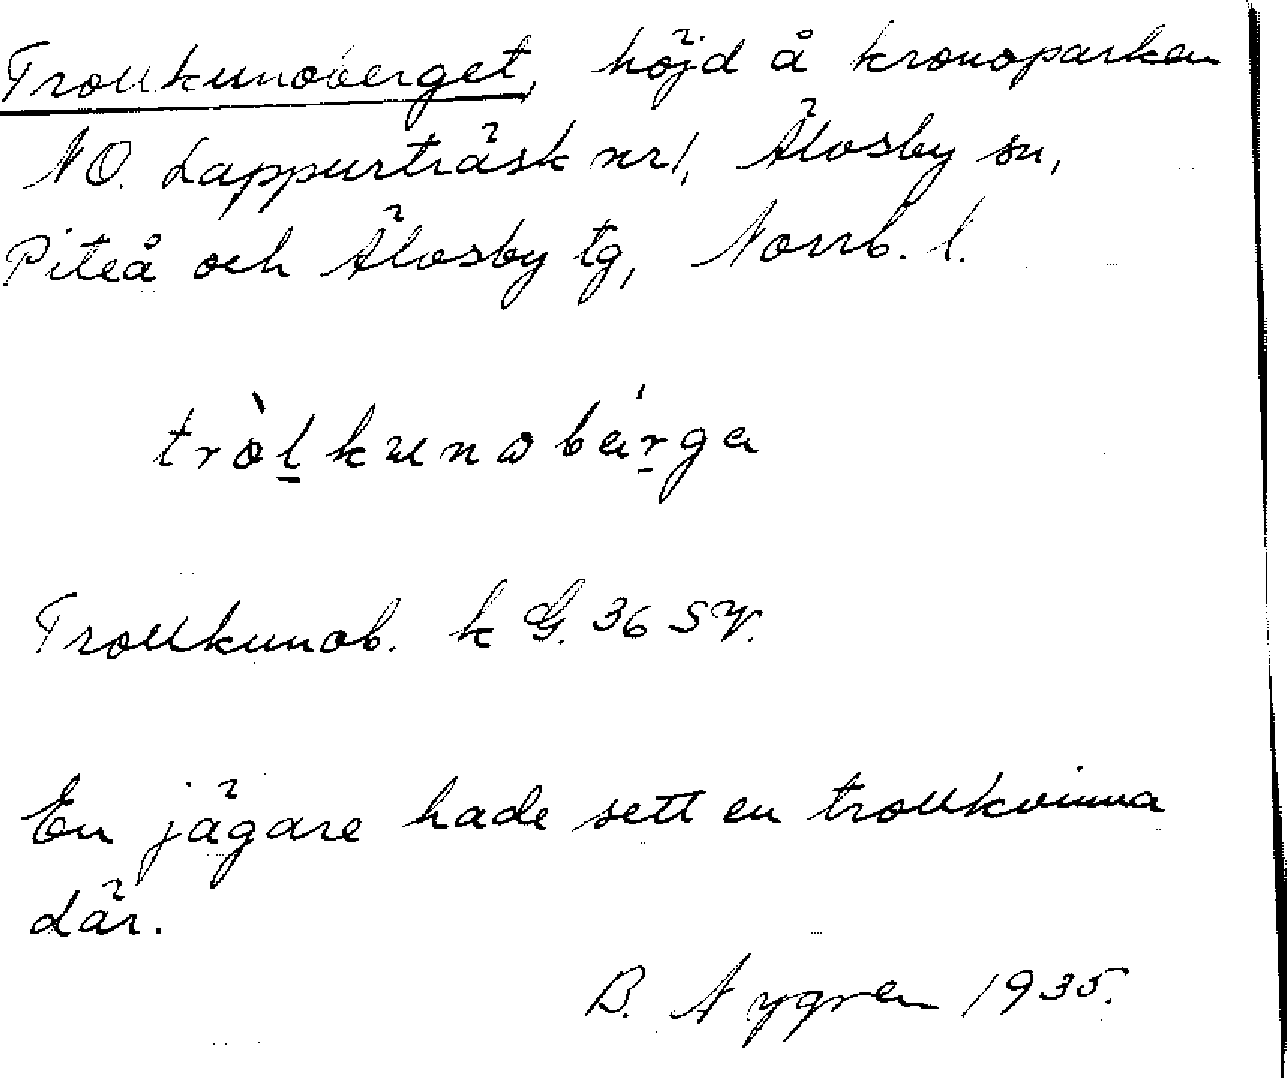 Trollkunoberget, höjd å kronoparken
NO. Lappurträsk nr 1, Älvsby sn,
Piteå och Älvsby tg, Norrb. l.
tròlkunobérga
Trollkunob. k G. 36 SV.
En jägare hade sett en trollkvinna
där.
B. Nygren 1935.